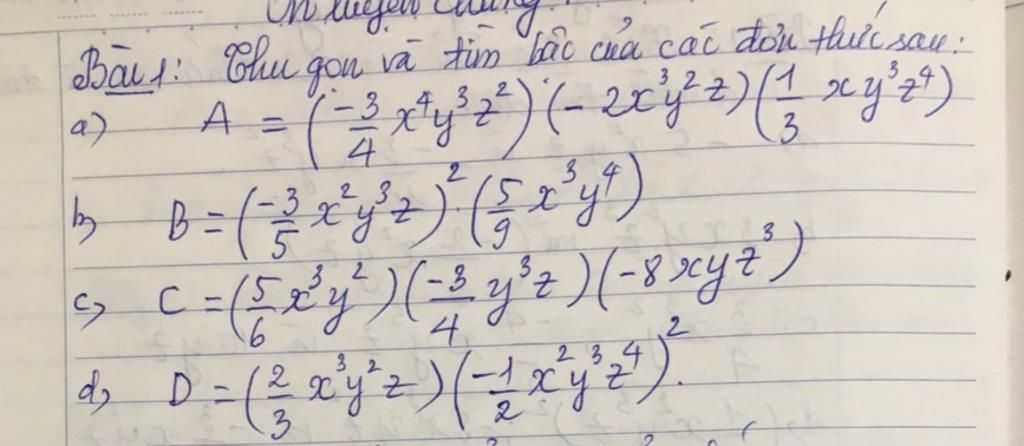 Ôn luyện chung
Bài 1: Thu gọn và tìm bậc của các đơn thức sau:
a) A = (-3/4 x⁴y³z²)(-2x³y²z)(1/3 xy³z⁴)
b) B = (-3/5 x²y³z)².(5/9 x³y⁴)
c) C = (5/6 x³y²)(-3/4 y³z)(-8xyz³)
d) D = (2/3 x³y²z)(-1/2 x²y³z⁴)².